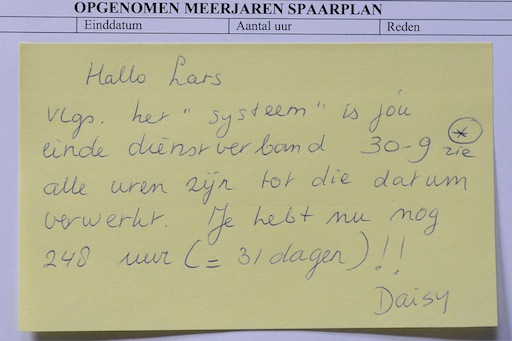 OPGENOMEN MEERJAREN SPAARPLAN
Einddatum Aantal uur Reden
Hallo Lars
Vlgs. het "systeem" is jóu
einde dienstverband 30-9 * zie
alle uren zijn tot die datum
verwerkt. Je hebt nu nog
248 uur (= 31 dagen)!!
Daisy